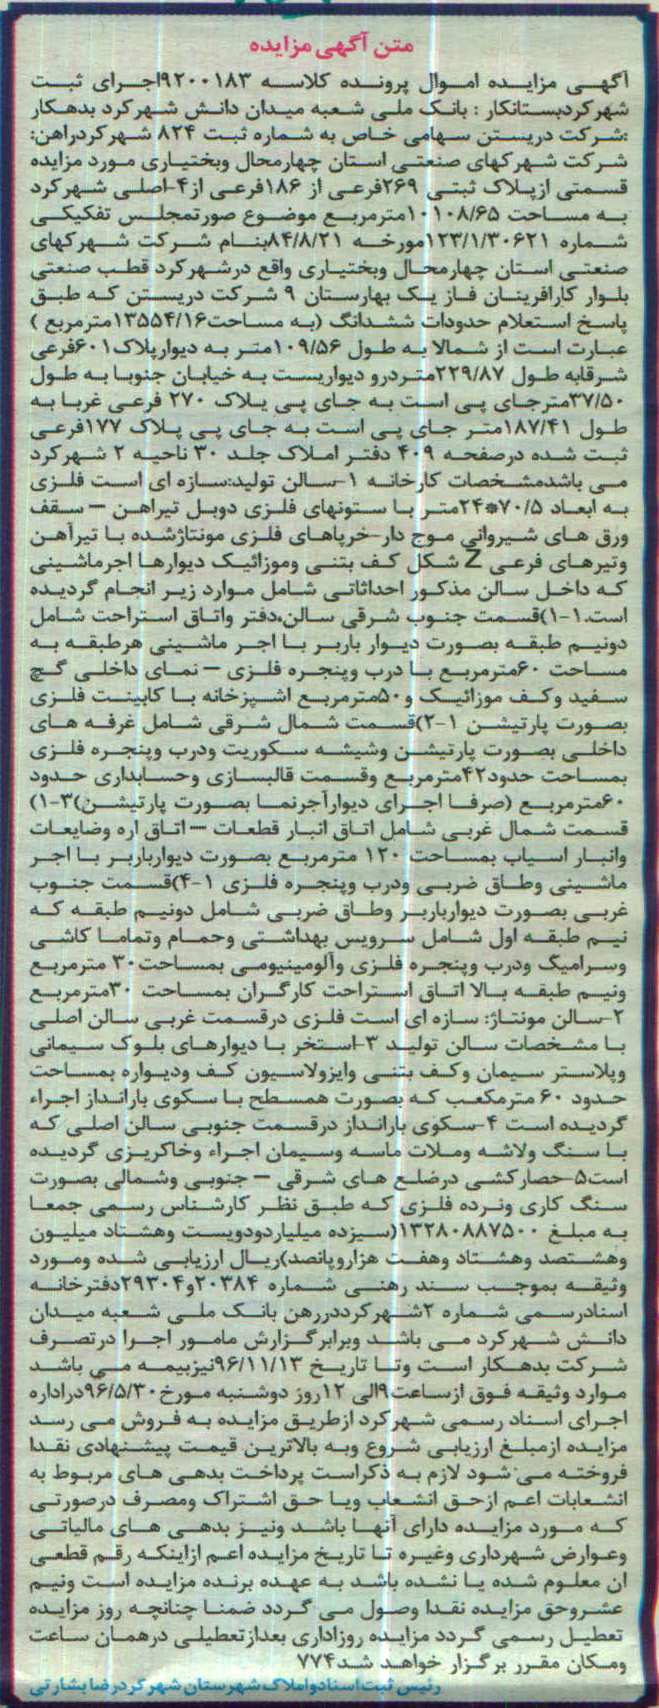 متن آگهی مزایده
آگهی مزایده اموال پرونده کلاسه ۹۲۰۰۱۸۳اجرای ثبت
شهرکردبستانکار : بانک ملی شعبه میدان دانش شهرکرد بدهکار
:شرکت دریستن سهامی خاص به شماره ثبت ۸۲۴ شهرکردراهن:
شرکت شهرکهای صنعتی استان چهارمحال وبختیاری مورد مزایده
قسمتی ازپلاک ثبتی ۲۶۹فرعی از ۱۸۶فرعی از۴-اصلی شهرکرد
به مساحت ۱۰۱۰۸/۶۵مترمربع موضوع صورتمجلس تفکیکی
شماره ۱۲۳/۱/۳۰۶۲۱مورخه ۸۴/۸/۲۱بنام شرکت شهرکهای
صنعتی استان چهارمحال وبختیاری واقع درشهرکرد قطب صنعتی
بلوار کارافرینان فاز یک بهارستان ۹ شرکت دریستن که طبق
پاسخ استعلام حدودات ششدانگ (به مساحت۱۳۵۵۴/۱۶مترمربع )
عبارت است از شمالا به طول ۱۰۹/۵۶متر به دیوارپلاک۶۰۱فرعی
شرقابه طول ۲۲۹/۸۷متردرو دیواریست به خیابان جنوبا به طول
۳۷/۵۰مترجای پی است به جای پی پلاک ۲۷۰ فرعی غربا به
طول ۱۸۷/۴۱متر جای پی است به جای پی پلاک ۱۷۷فرعی
ثبت شده درصفحه ۴۰۹ دفتر املاک جلد ۳۰ ناحیه ۲ شهرکرد
می باشدمشخصات کارخانه ۱-سالن تولید:سازه ای است فلزی
به ابعاد ۷۰/۵*۲۴متر با ستونهای فلزی دوبل تیراهن – سقف
ورق های شیروانی موج دار-خرپاهای فلزی مونتاژشده با تیرآهن
وتیرهای فرعی Z شکل کف بتنی وموزائیک دیوارها اجرماشینی
که داخل سالن مذکور احداثاتی شامل موارد زیر انجام گردیده
است.۱-۱)قسمت جنوب شرقی سالن،دفتر واتاق استراحت شامل
دونیم طبقه بصورت دیوار باربر با اجر ماشینی هرطبقه به
مساحت ۶۰مترمربع با درب وپنجره فلزی – نمای داخلی گچ
سفید وکف موزائیک و۵۰مترمربع اشپزخانه با کابینت فلزی
بصورت پارتیشن ۱-۲)قسمت شمال شرقی شامل غرفه های
داخلی بصورت پارتیشن وشیشه سکوریت ودرب وپنجره فلزی
بمساحت حدود۴۲مترمربع وقسمت قالبسازی وحسابداری حدود
۶۰مترمربع (صرفا اجرای دیوارآجرنما بصورت پارتیشن)۳-۱)
قسمت شمال غربی شامل اتاق انبار قطعات – اتاق اره وضایعات
وانبار اسیاب بمساحت ۱۲۰ مترمربع بصورت دیوارباربر با اجر
ماشینی وطاق ضربی ودرب وپنجره فلزی ۱-۴)قسمت جنوب
غربی بصورت دیوارباربر وطاق ضربی شامل دونیم طبقه که
نیم طبقه اول شامل سرویس بهداشتی وحمام وتماما کاشی
وسرامیک ودرب وپنجره فلزی وآلومینیومی بمساحت۳۰ مترمربع
ونیم طبقه بالا اتاق استراحت کارگران بمساحت ۳۰مترمربع
۲-سالن مونتاژ: سازه ای است فلزی درقسمت غربی سالن اصلی
با مشخصات سالن تولید ۳-استخر با دیوارهای بلوک سیمانی
وپلاستر سیمان وکف بتنی وایزولاسیون کف ودیواره بمساحت
حدود ۶۰ مترمکعب که بصورت همسطح با سکوی بارانداز اجراء
گردیده است ۴-سکوی بارانداز درقسمت جنوبی سالن اصلی که
با سنگ ولاشه وملات ماسه وسیمان اجراء وخاکریزی گردیده
است۵-حصارکشی درضلع های شرقی – جنوبی وشمالی بصورت
سنگ کاری ونرده فلزی که طبق نظر کارشناس رسمی جمعا
به مبلغ ۱۳۲۸۰۸۸۷۵۰۰(سیزده میلیاردودویست وهشتاد میلیون
وهشتصد وهشتاد وهفت هزاروپانصد)ریال ارزیابی شده ومورد
وثیقه بموجب سند رهنی شماره ۲۰۳۸۴و۲۹۳۰۴دفترخانه
اسنادرسمی شماره ۲شهرکرددررهن بانک ملی شعبه میدان
دانش شهرکرد می باشد وبرابرگزارش مامور اجرا درتصرف
شرکت بدهکار است وتا تاریخ ۹۶/۱۱/۱۳نیزبیمه می باشد
موارد وثیقه فوق ازساعت۹الی ۱۲روز دوشنبه مورخ۹۶/۵/۳۰دراداره
اجرای اسناد رسمی شهرکرد ازطریق مزایده به فروش می رسد
مزایده ازمبلغ ارزیابی شروع وبه بالاترین قیمت پیشنهادی نقدا
فروخته می شود لازم به ذکراست پرداخت بدهی های مربوط به
انشعابات اعم ازحق انشعاب ویا حق اشتراک ومصرف درصورتی
که مورد مزایده دارای آنها باشد ونیز بدهی های مالیاتی
وعوارض شهرداری وغیره تا تاریخ مزایده اعم ازاینکه رقم قطعی
ان معلوم شده یا نشده باشد به عهده برنده مزایده است ونیم
عشروحق مزایده نقدا وصول می گردد ضمنا چنانچه روز مزایده
تعطیل رسمی گردد مزایده روزاداری بعدازتعطیلی درهمان ساعت
ومکان مقرر برگزار خواهد شد۷۷۴
رئیس ثبت اسنادواملاک شهرستان شهرکردرضابشارتی